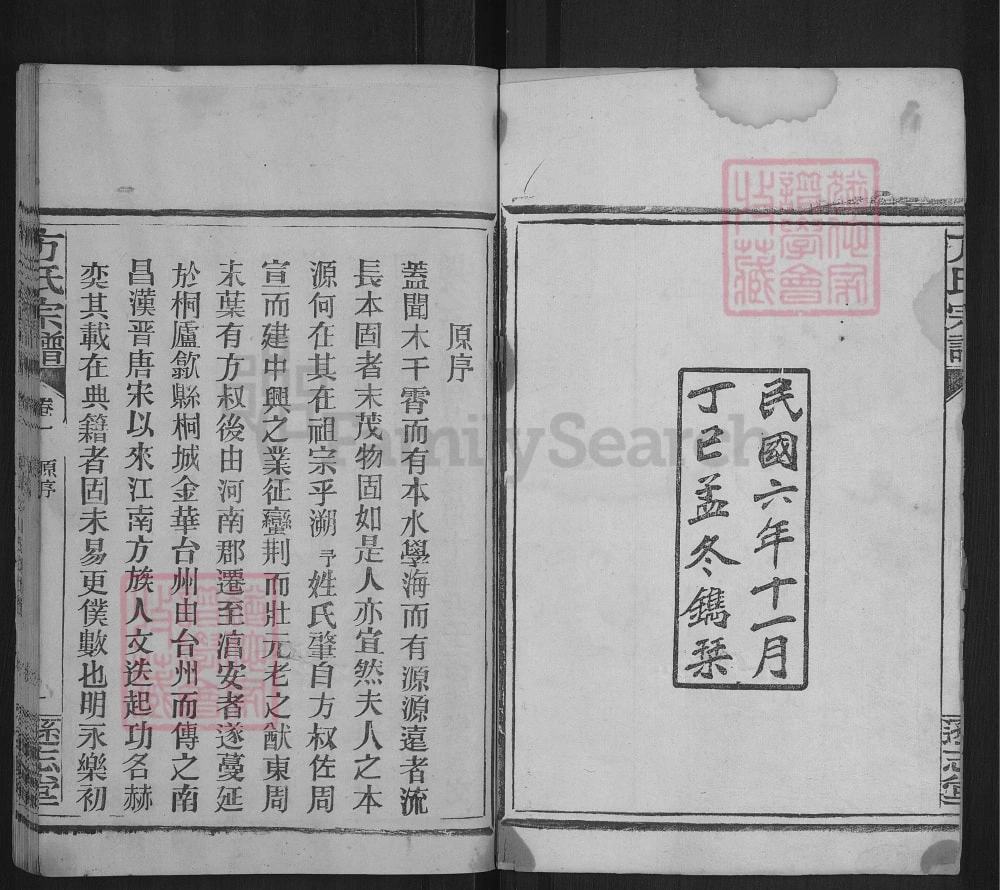 民國六年十一月
丁巳孟冬鐫栞
方氏宗譜
原序
蓋聞木干霄而有本水學海而有源源遠者流
長本固者末茂物固如是人亦宜然夫人之本
源何在其在祖宗乎溯予姓氏肇自方叔佐周
宣而建中興之業征蠻荆而壯元老之猷東周
末葉有方叔後由河南郡遷至湻安者遂蔓延
於桐廬歙縣桐城金華台州由台州而傳之南
昌漢晋唐宋以來江南方族人文迭起功名赫
奕其載在典籍者固未易更僕數也明永樂初
方氏宗譜
卷一
原序
一
遜志堂
FamilySearch